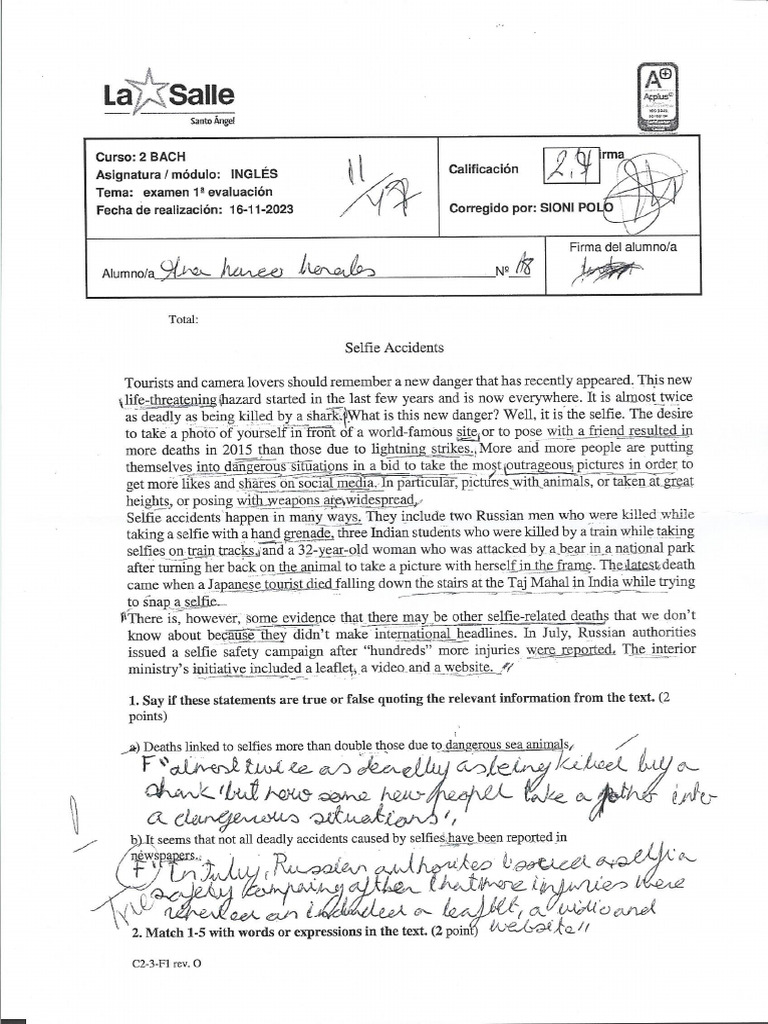 La Salle
Santo Ángel
A+
Applus⊕
Curso: 2 BACH
Asignatura / módulo: INGLÉS
Tema: examen 1ª evaluación
Fecha de realización: 16-11-2023
11/47
Calificación 2,4 irma
Corregido por: SIONI POLO
Alumno/a Nº 18
Firma del alumno/a
Total:
Selfie Accidents
Tourists and camera lovers should remember a new danger that has recently appeared. This new
life-threatening hazard started in the last few years and is now everywhere. It is almost twice
as deadly as being killed by a shark. What is this new danger? Well, it is the selfie. The desire
to take a photo of yourself in front of a world-famous site, or to pose with a friend resulted in
more deaths in 2015 than those due to lightning strikes. More and more people are putting
themselves into dangerous situations in a bid to take the most outrageous pictures in order to
get more likes and shares on social media. In particular, pictures with animals, or taken at great
heights, or posing with weapons are widespread.
Selfie accidents happen in many ways. They include two Russian men who were killed while
taking a selfie with a hand grenade, three Indian students who were killed by a train while taking
selfies on train tracks, and a 32-year-old woman who was attacked by a bear in a national park
after turning her back on the animal to take a picture with herself in the frame. The latest death
came when a Japanese tourist died falling down the stairs at the Taj Mahal in India while trying
to snap a selfie.
There is, however, some evidence that there may be other selfie-related deaths that we don't
know about because they didn't make international headlines. In July, Russian authorities
issued a selfie safety campaign after “hundreds” more injuries were reported. The interior
ministry's initiative included a leaflet, a video and a website.
1. Say if these statements are true or false quoting the relevant information from the text. (2
points)
a) Deaths linked to selfies more than double those due to dangerous sea animals.
F "almost twice as deadly as being killed by a
shark" but now some new people take a into
a dangerous situations",
b) It seems that not all deadly accidents caused by selfies have been reported in
newspapers.
F "In July, Russian a selfie
safety after that more injuries were
included a leaflet, a and
True
website"
2. Match 1-5 with words or expressions in the text. (2 point)
C2-3-F1 rev. O